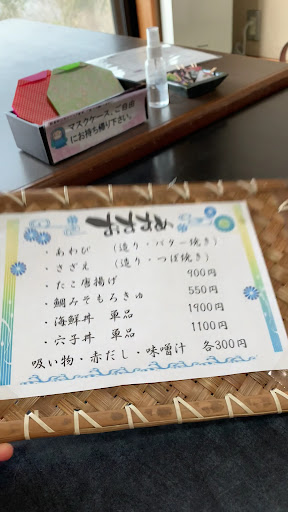 マスクケース、ご自由
にお持ち帰り下さい。
・あわび (造り・バター焼き)
・さざえ (造り・つぼ焼き)
・たこ唐揚げ 900円
・鯛みそもろきゅ 550円
・海鮮丼 単品 1900円
・穴子丼 単品 1100円
吸い物・赤だし・味噌汁 各300円